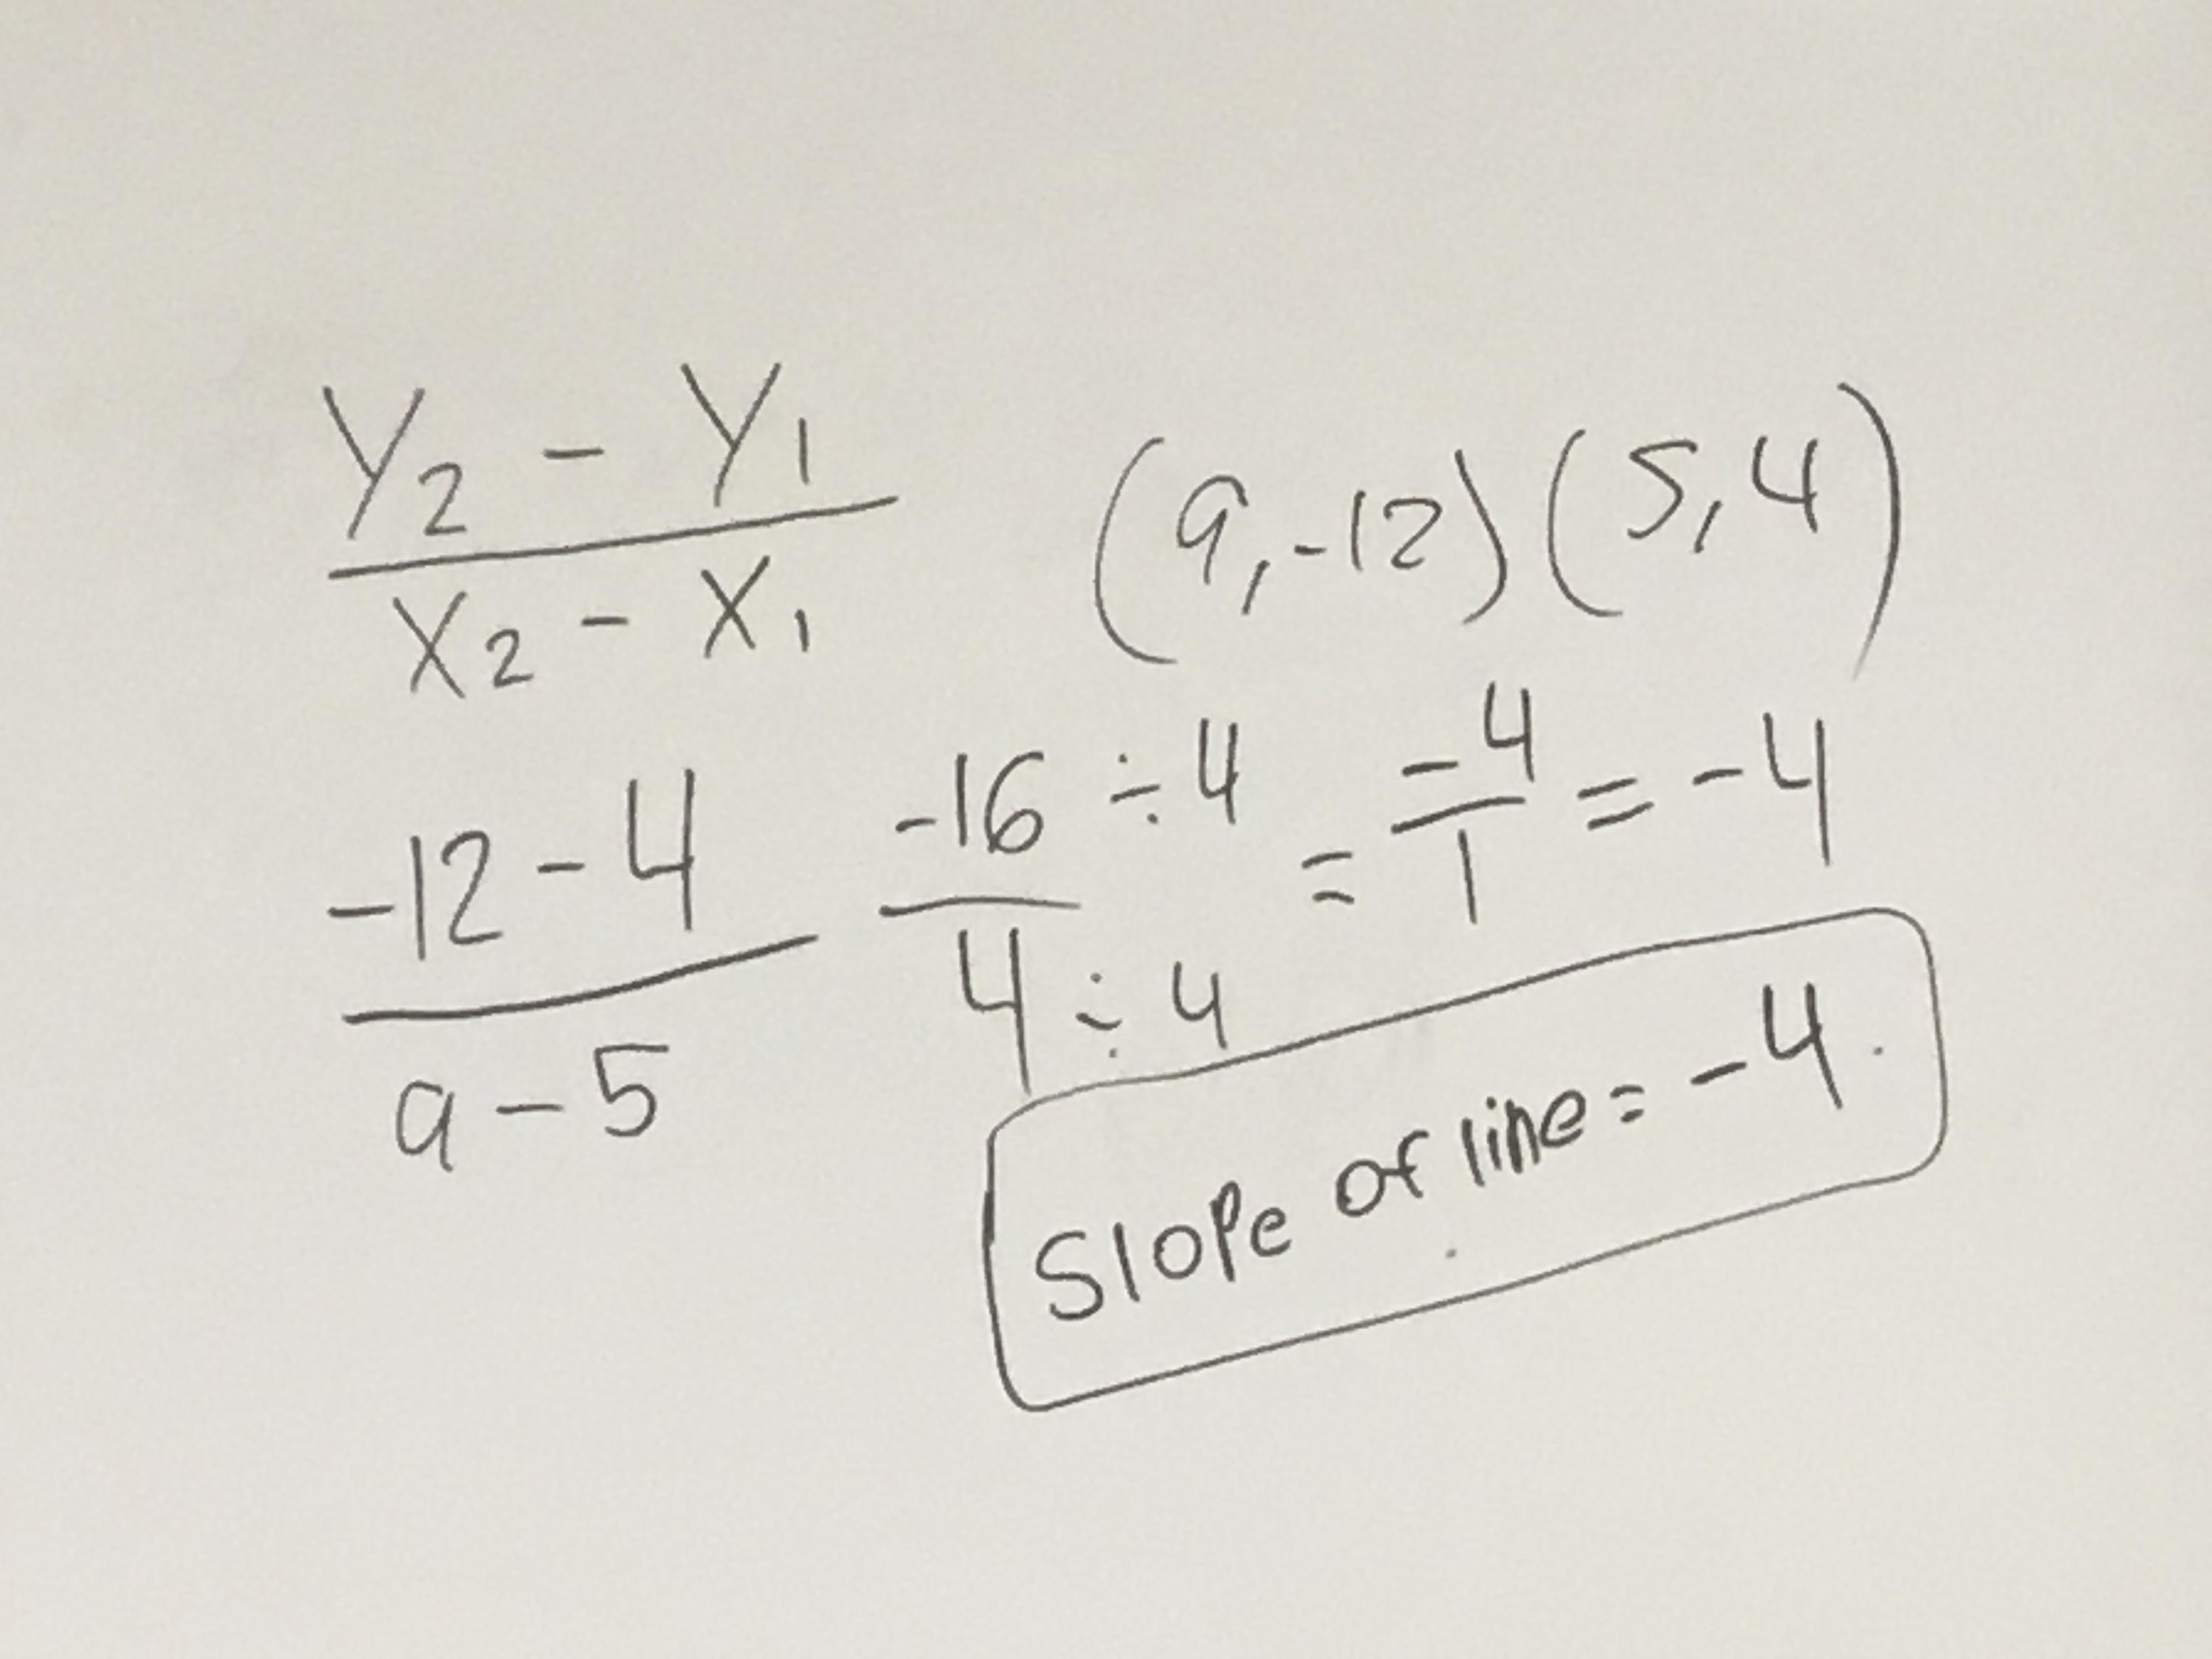 Y₂ - Y₁ / X₂ - X₁
(9,-12)(5,4)
-12-4 / 9-5
-16÷4 / 4÷4 = -4/1 = -4
Slope of line = -4.